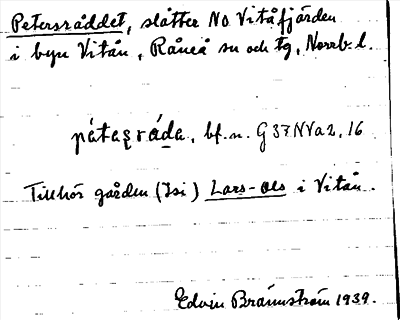 Petersråddet, slåtter NO Vitåfjärden
i byn Vitån, Råneå sn och tg, Norrb. l.
pátaʂráda, bf. n. G 37 NVa2, 16
Tillhör gården (Isi) Lars-Ols i Vitån.
Edvin Brännström 1939.